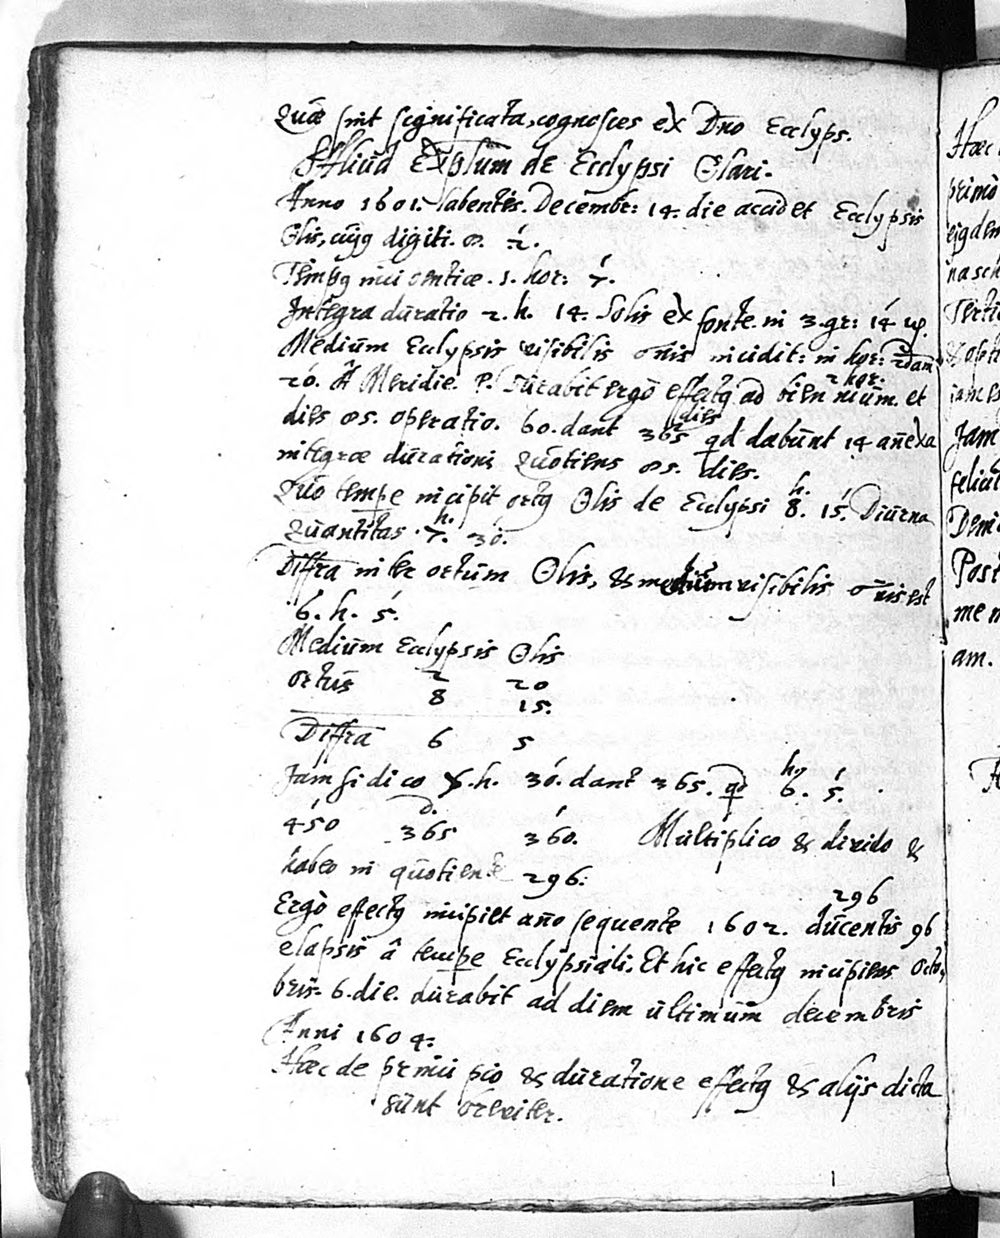 Quæ sint significata, cognosces ex Dno Ecclyps.
Aliud Explum de Ecclypsi Solari.
Anno 1601. labentis. Decembr: 14. die accidet Ecclypsis
Solis, cujq digiti. 2.
Tempq incidentiæ. 1. hor: 7.
Integra duratio 2. h. 14. Solis ex fonte. in 3. gr: 14
Medium Ecclypsis visibilis incidit: in hor: 2dam
20. A Meridie. P. durabit ergò effectq ad biennium. et
2 hor.
dies 85. operatio. 60. dant 365 qd dabunt 14 añexa
dies
integræ durationi Quotiens 85. dies.
Quo tempe incipit ortq Solis de Ecclypsi 8. 15. Diurna
h.
Quantitas. 7. 30.
h.
Diffra inter ortum Solis, & medium visibilis est
6. h. 5.
Medium Ecclypsis Solis
2 20
ortus 8 15.
Diffra 6 5
Jam si dico 7. h. 30. dant 365. qd 6. 5.
h.
450 365 360. Multiplico & divido &
d.
habeo in quotiente 296:
296
Ergò effectq incipiet año sequente 1602. ducentis 96
elapsis â tempe Ecclypsiali. Et hic effectq incipiens Octo,
bris. 6. die. durabit ad diem ultimum decembris
Anni 1604.
Hæc de principio & duratione effectq & alijs dicta
sunt breviter.
Hæc
primò
ejqdem
Jam
Post
am.